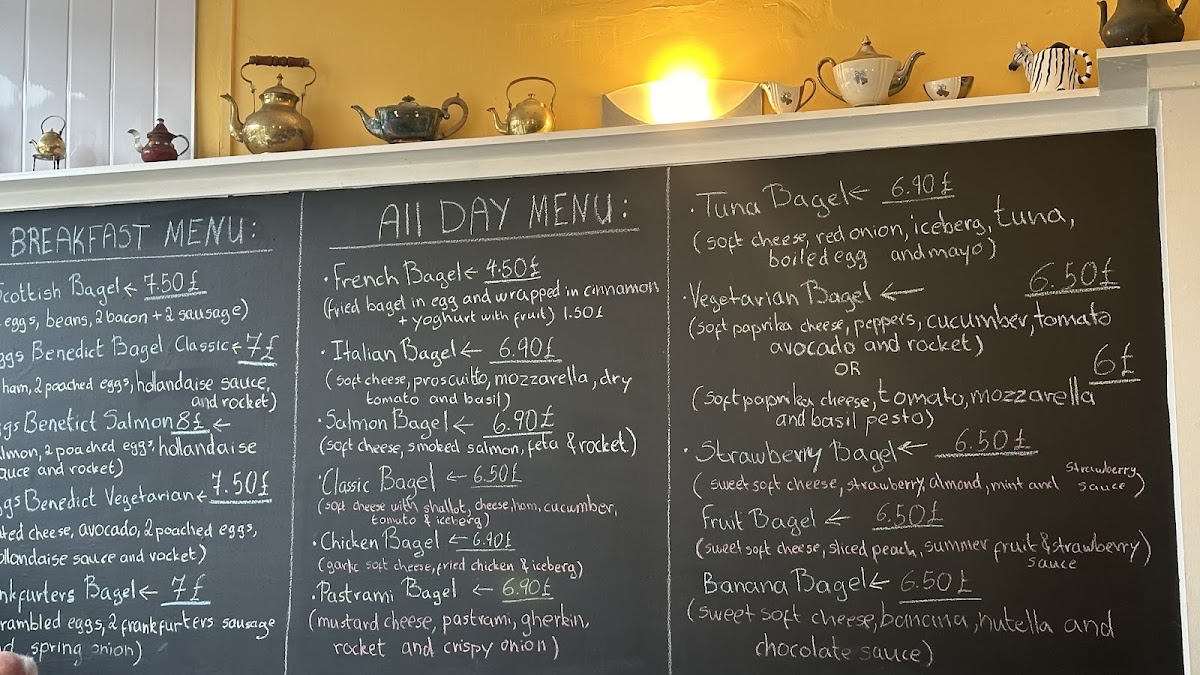 BREAKFAST MENU:
Scottish Bagel ← 7.50£
eggs, beans, 2 bacon + 2 sausage)
ggs Benedict Bagel Classic ← 7£
ham, 2 poached eggs, hollandaise sauce,
and rocket)
ggs Benetict Salmon 8£ ←
almon, 2 poached eggs, hollandaise
auce and rocket)
ggs Benedict Vegetarian ← 7.50£
ted cheese, avocado, 2 poached eggs,
ollandaise sauce and rocket)
nkfurters Bagel ← 7£
rambled eggs, 2 frankfurters sausage
d spring onion)
All DAY MENU:
· French Bagel ← 4.50£
(fried bagel in egg and wrapped in cinnamon
+ yoghurt with fruit) 1.50£
· Italian Bagel ← 6.90£
(soft cheese, proscuitto, mozzarella, dry
tomato and basil)
· Salmon Bagel ← 6.90£
(soft cheese, smoked salmon, feta & rocket)
· Classic Bagel ← 6.50£
(soft cheese with shallot, cheese, ham, cucumber,
tomato & iceberg)
· Chicken Bagel ← 6.90£
(garlic soft cheese, fried chicken & iceberg)
· Pastrami Bagel ← 6.90£
(mustard cheese, pastrami, gherkin,
rocket and crispy onion)
· Tuna Bagel ← 6.90£
(soft cheese, red onion, iceberg, tuna,
boiled egg and mayo)
· Vegetarian Bagel ← 6.50£
(soft paprika cheese, peppers, cucumber, tomato
avocado and rocket)
OR 6£
(soft paprika cheese, tomato, mozzarella
and basil pesto)
· Strawberry Bagel ← 6.50£
(sweet soft cheese, strawberry, almond, mint and strawberry
sauce)
Fruit Bagel ← 6.50£
(sweet soft cheese, sliced peach, summer fruit & strawberry)
sauce
Banana Bagel ← 6.50£
(sweet soft cheese, banana, nutella and
chocolate sauce)